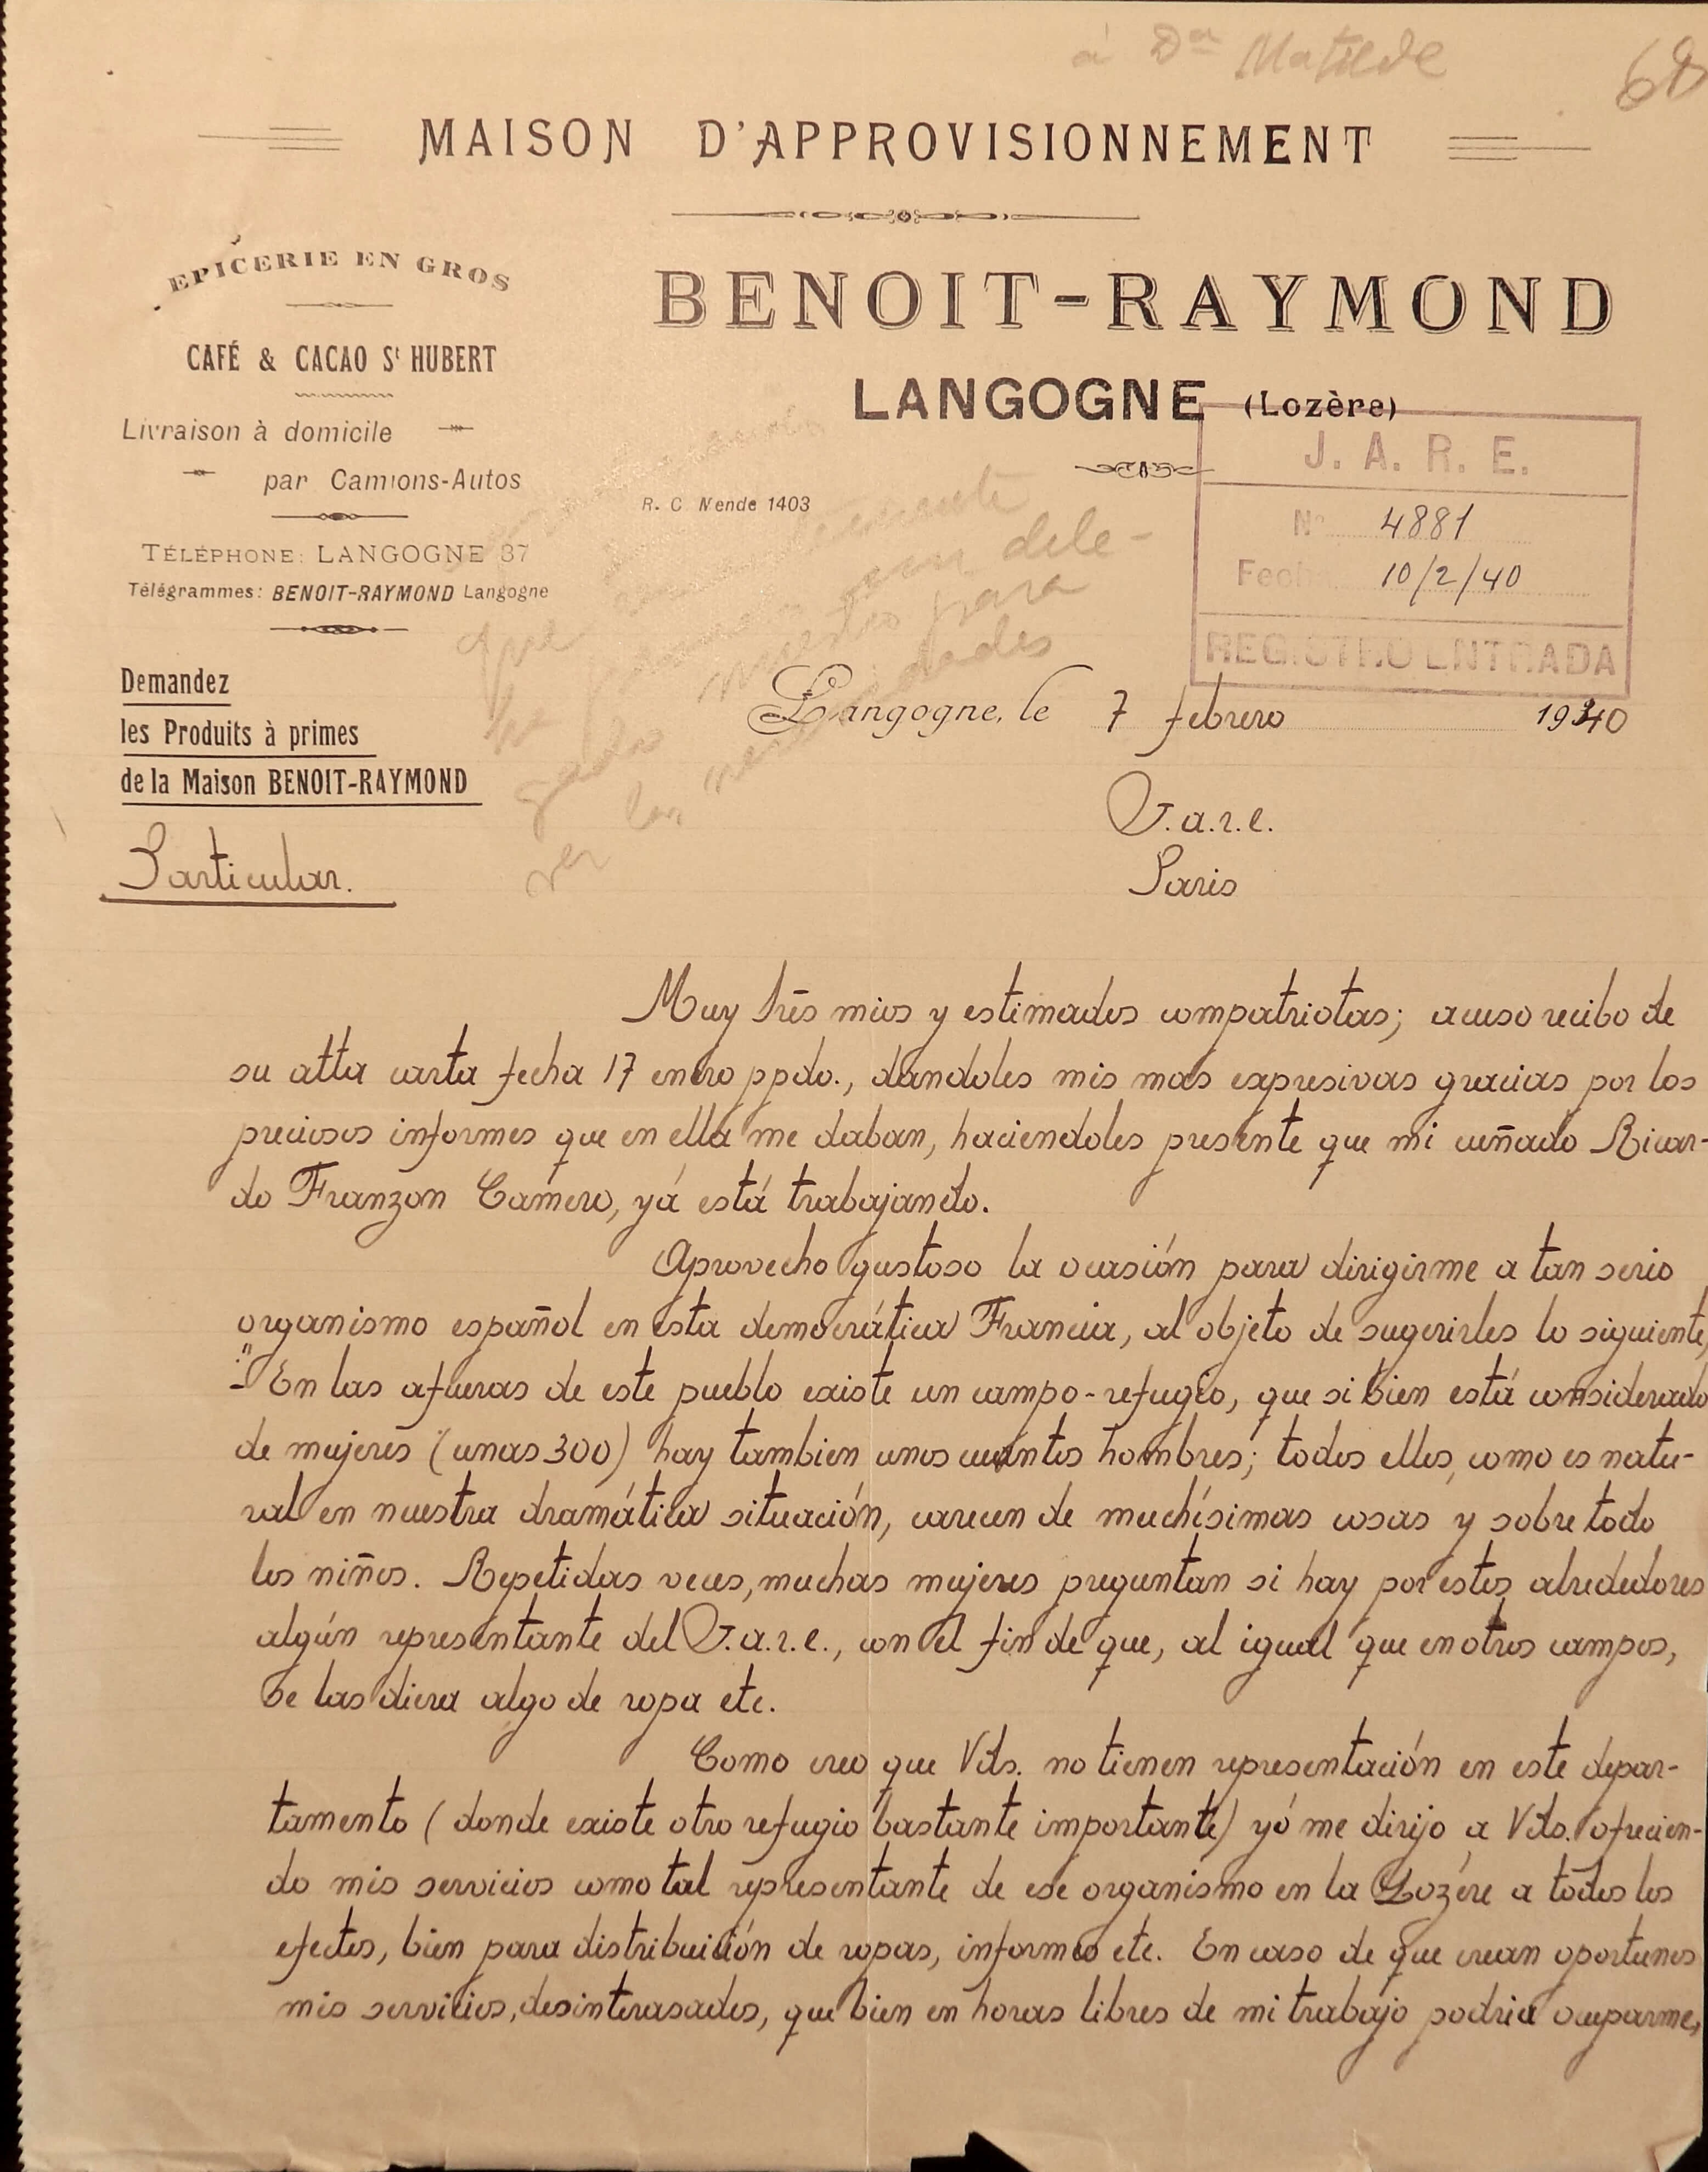 à Dª Matilde
68
MAISON D'APPROVISIONNEMENT
EPICERIE EN GROS
BENOIT-RAYMOND
CAFÉ & CACAO Sᵗ HUBERT
LANGOGNE (Lozère)
Livraison à domicile
par Camions-Autos
R. C. Mende 1403
J. A. R. E.
Nº 4881
Fecha 10/2/40
REGISTRO ENTRADA
TÉLÉPHONE: LANGOGNE 37
Télégrammes: BENOIT-RAYMOND Langogne
que
dele-
gado nuestro para
ver las necesidades
Demandez
les Produits à primes
de la Maison BENOIT-RAYMOND
Langogne, le 7 febrero 1940
J.a.r.e.
Paris
Particular.
Muy Srēs mios y estimados compatriotas; acuso recibo de
su atta carta fecha 17 enero ppdo., dandoles mis mas expresivas gracias por los
preciosos informes que en ella me daban, haciendoles presente que mi cuñado Ricar-
do Franzon Camero, yá está trabajando.
Aprovecho gustoso la ocasión para dirigirme a tan serio
organismo español en esta democrática Francia, al objeto de sugerirles lo siguiente,
:"- En las afueras de este pueblo existe un campo-refugio, que si bien está considerado
de mujeres (unas 300) hay tambien unos cuantos hombres; todos ellos, como es natu-
ral en nuestra dramática situación, carecen de muchísimas cosas y sobre todo
los niños. Repetidas veces, muchas mujeres preguntan si hay por estos alrededores
algún representante del J.a.r.e., con el fin de que, al igual que en otros campos,
se las diera algo de ropa etc.
Como creo que Vds. no tienen representación en este depar-
tamento (donde existe otro refugio bastante importante) yó me dirijo a Vds. ofrecien-
do mis servicios como tal representante de ese organismo en la Lozére a todos los
efectos, bien para distribuición de ropas, informes etc. En caso de que crean oportunos
mis servicios, desinterasados, que bien en horas libres de mi trabajo podria ocuparme,